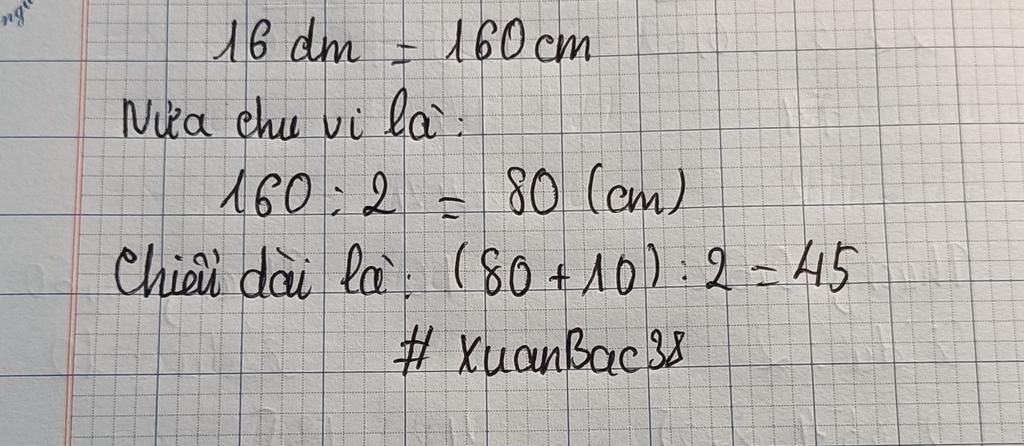 16 dm = 160 cm
Nửa chu vi là:
160 : 2 = 80 (cm)
Chiều dài là: (80 + 10) : 2 = 45
# XuanBac38